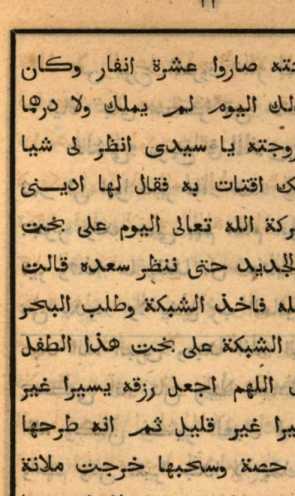 صاروا عشرة انفار وكان
اليوم لم يملك ولا درهما
يا سيدى انظر لى شيا
اقتات به فقال لها اديـنى
الله تعالى اليوم على بخت
الجديد حتى ننظر سعده قالت
فاخذ الشبكة وطلب البحر
الشبكة على بخت هذا الطفل
اللهم اجعل رزقه يسيرا غير
غير قليل ثم انه طرحها
حصة وسحبها خرجت ملانة